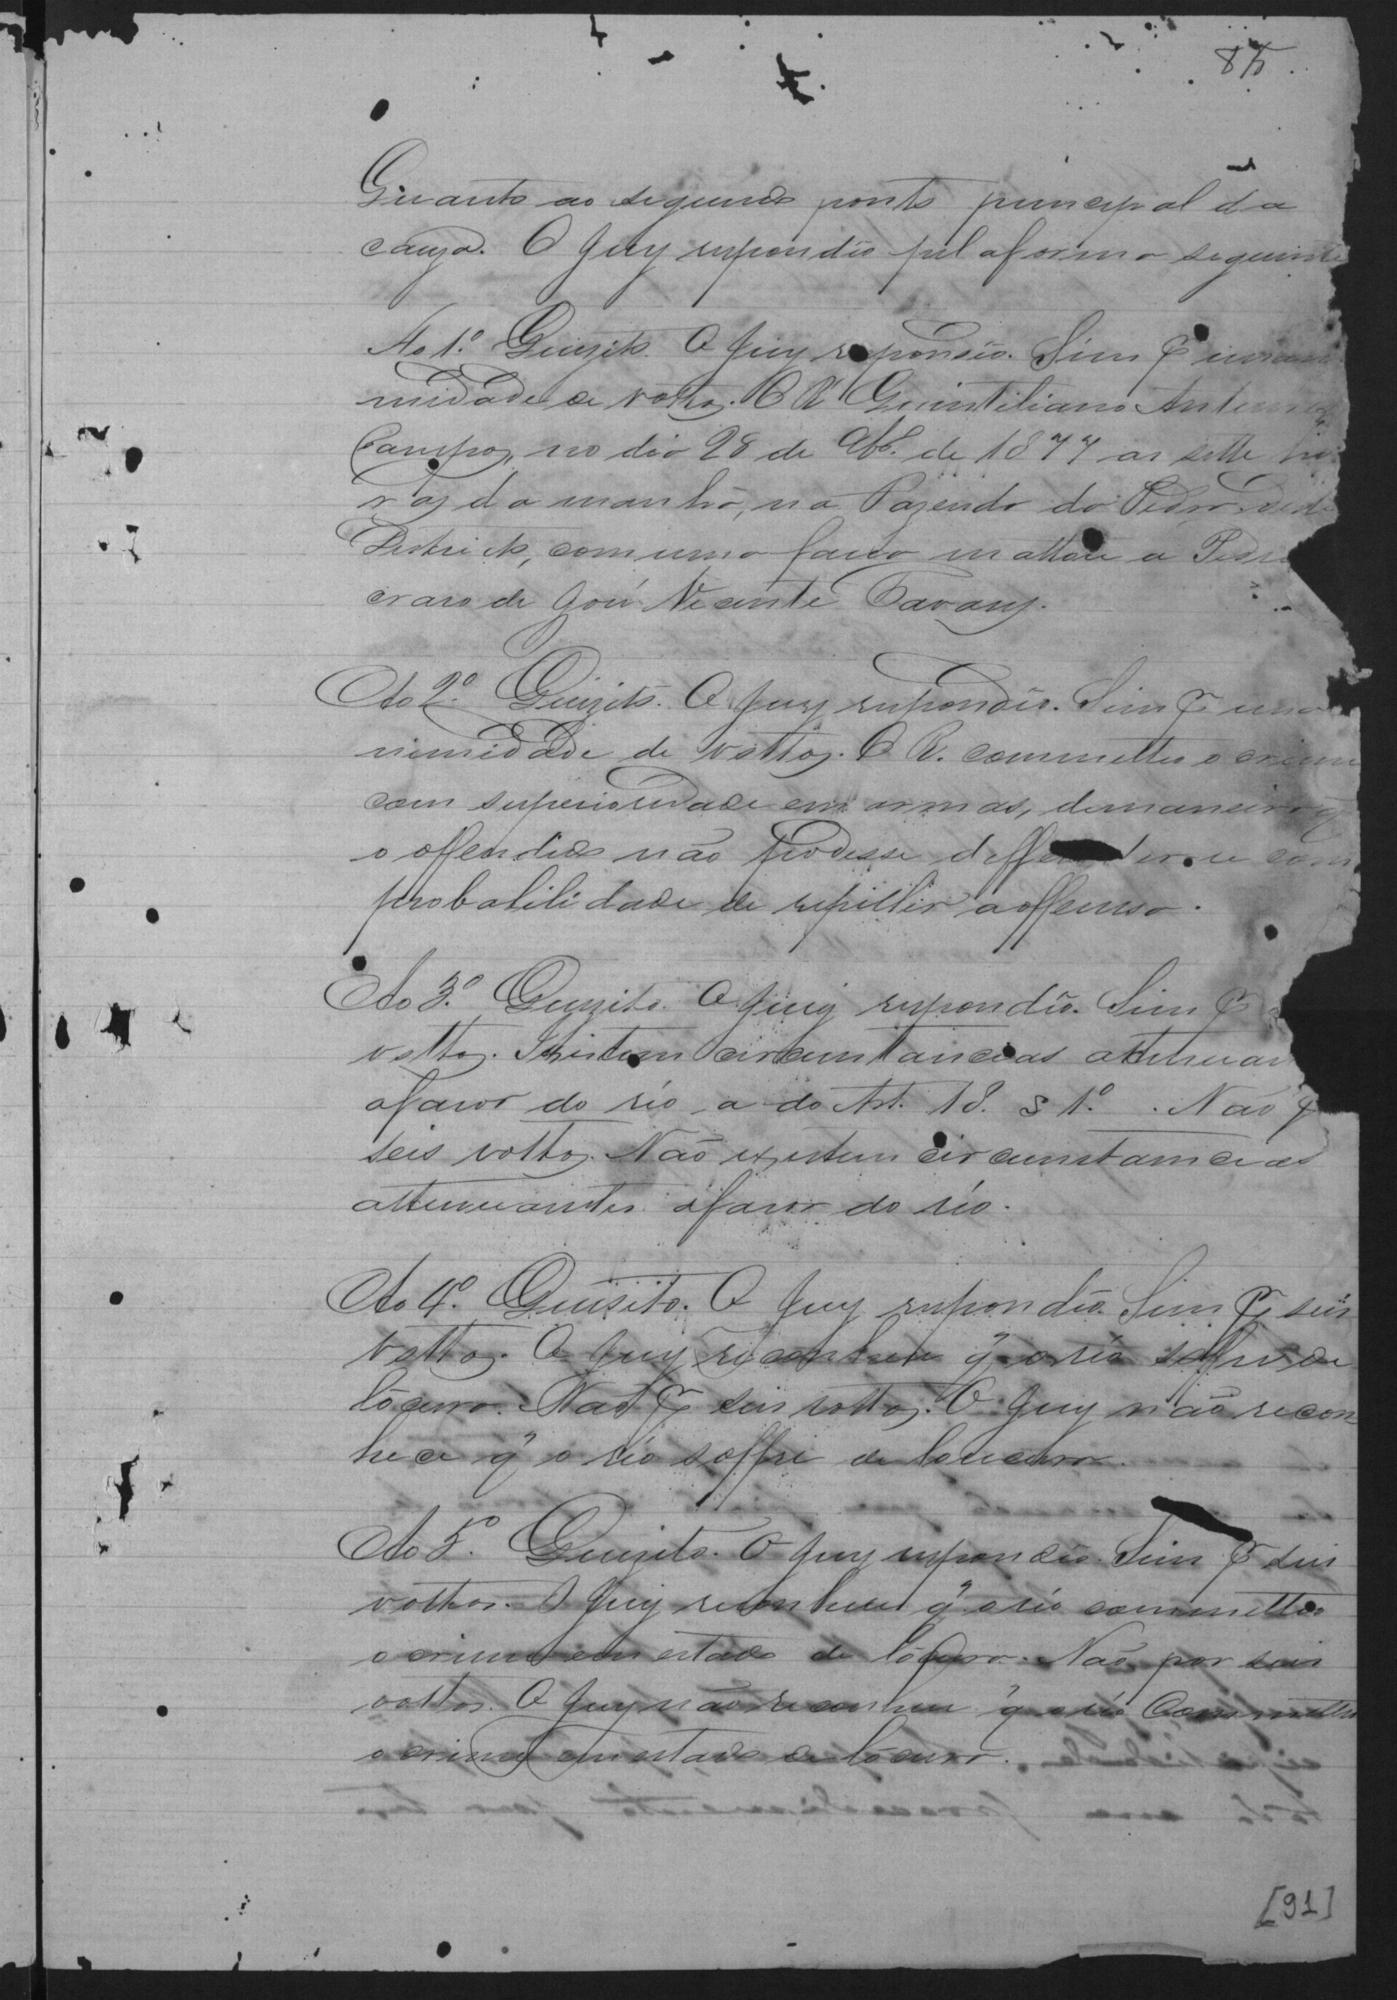 85
Quanto ao segundo ponto principal da
cauza. O Jury respondeo pela forma seguinte
Ao 1.º Quizito. O Jury respondeo. Sim p.r unani
midade de vottos. O R. Quintiliano Antunes
Campos, no dia 28 de de 1877 as sette ho
ras da manhã, na Fazenda do Pedro, deste
Districto, com uma faca mattou a Pedro
cravo de José Vicente Tavares.
Ao 2.º Quizito. O Jury respondeo. Sim p.r una
nimidade de vottos. O R. commetteo o crime
com superioridade em armas, demaneira q
o offendido não podesse deffender-se com
probabilidade de repillir a offensa.
Ao 3.º Quizito. O Jury respondeo. Sim p.r
vottos. Existem circumstancias attenuan
afavor do réo a do Art. 18. § 1.º. Não p
seis vottos. Não existem circumstancias
attenuantes afavor do réo.
Ao 4.º Quisito. O Jury respondeo. Sim p.r seis
vottos. O Jury reconhece q' o réo soffre de
locura. Não p.r seis vottos. O Jury não recon
hece q' o réo soffre de loucura.
Ao 5.º Quizito. O Jury respondeo. Sim p.r seis
vottos. O Jury reconhece q' o réo commetteo
o crime em estado de locura. Não por seis
vottos. O Jury não reconhece q' o réo Commetteo
o crime em estado de locura.
[91]